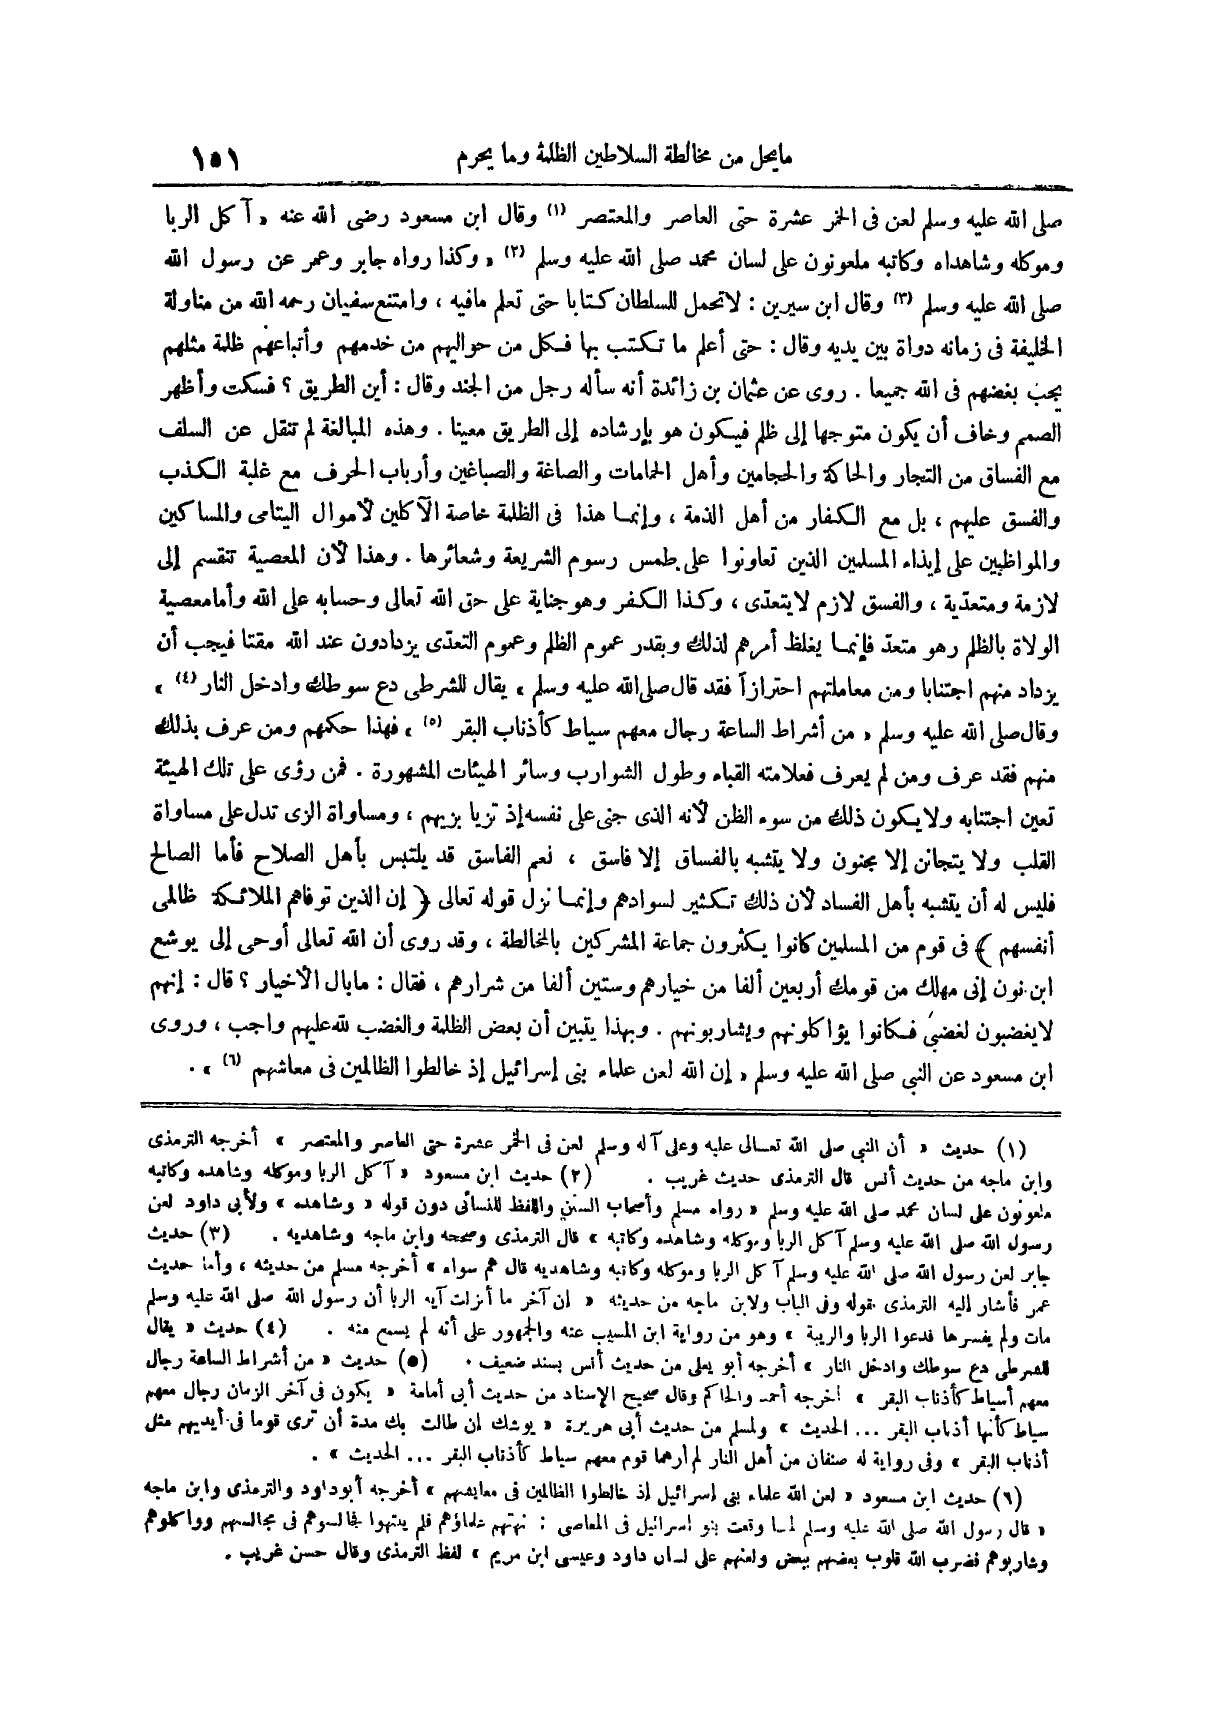 مايحل من مخالطة السلاطين الظلمة وما يحرم ١٥١
صلى الله عليه وسلم لعن فى الخمر عشرة حتى العاصر والمعتصر (١) وقال ابن مسعود رضى الله عنه « آكل الربا
وموكله وشاهداه وكاتبه ملعونون على لسان محمد صلى الله عليه وسلم (٢) » وكذا رواه جابر وعمر عن رسول الله
صلى الله عليه وسلم (٣) وقال ابن سيرين : لاتحمل للسلطان كتابا حتى تعلم مافيه ، وامتنع سفيان رحمه الله من مناولة
الخليفة فى زمانه دواة بين يديه وقال : حتى أعلم ما تكتب بها فكل من حواليهم من خدمهم وأتباعهم ظلمة مثلهم
يجب بغضهم فى الله جميعا . روى عن عثمان بن زائدة أنه سأله رجل من الجند وقال : أين الطريق ؟ فسكت وأظهر
الصمم وخاف أن يكون متوجها إلى ظلم فيكون هو بإرشاده إلى الطريق معينا . وهذه المبالغة لم تنقل عن السلف
مع الفساق من التجار والحاكة والحجامين وأهل الحمامات والصاغة والصباغين وأرباب الحرف مع غلبة الكذب
والفسق عليهم ، بل مع الكفار من أهل الذمة ، وإنما هذا فى الظلمة خاصة الآكلين لأموال اليتامى والمساكين
والمواظبين على إيذاء المسلمين الذين تعاونوا على طمس رسوم الشريعة وشعائرها . وهذا لأن المعصية تنقسم إلى
لازمة ومتعدّية ، والفسق لازم لايتعدّى ، وكذا الكفر وهو جناية على حق الله تعالى وحسابه على الله وأما معصية
الولاة بالظلم وهو متعدّ فإنما يغلظ أمرهم لذلك وبقدر عموم الظلم وعموم التعدّى يزدادون عند الله مقتا فيجب أن
يزداد منهم اجتنابا ومن معاملتهم احترازاً فقد قال صلى الله عليه وسلم « يقال للشرطى دع سوطك وادخل النار (٤) »
وقال صلى الله عليه وسلم « من أشراط الساعة رجال معهم سياط كأذناب البقر (٥) » فهذا حكمهم ومن عرف بذلك
منهم فقد عرف ومن لم يعرف فعلامته القباء وطول الشوارب وسائر الهيئات المشهورة . فمن رؤى على تلك الهيئة
تعين اجتنابه ولايكون ذلك من سوء الظن لأنه الذى جنى على نفسه إذ تزيا بزيهم ، ومساواة الزى تدل على مساواة
القلب ولا يتجانن إلا مجنون ولا يتشبه بالفساق إلا فاسق ، نعم الفاسق قد يلتبس بأهل الصلاح فأما الصالح
فليس له أن يتشبه بأهل الفساد لأن ذلك تكثير لسوادهم وإنما نزل قوله تعالى ﴿ إن الذين توفاهم الملائكة ظالمى
أنفسهم ﴾ فى قوم من المسلمين كانوا يكثرون جماعة المشركين بالمخالطة ، وقد روى أن الله تعالى أوحى إلى يوشع
ابن نون إنى مهلك من قومك أربعين ألفا من خيارهم وستين ألفا من شرارهم ، فقال : مابال الأخيار ؟ قال : إنهم
لايغضبون لغضبى فكانوا يؤاكلونهم ويشاربونهم . وبهذا يتبين أن بعض الظلمة والغضب لله عليهم واجب ، وروى
ابن مسعود عن النبي صلى الله عليه وسلم « إن الله لعن علماء بنى إسرائيل إذ خالطوا الظالمين فى معاشهم (٦) » .
(١) حديث « أن النبي صلى الله تعالى عليه وعلى آله وسلم لعن فى الخمر عشرة حتى العاصر والمعتصر » أخرجه الترمذى
وابن ماجه من حديث أنس قال الترمذى حديث غريب . (٢) حديث ابن مسعود « آكل الربا وموكله وشاهده وكاتبه
ملعونون على لسان محمد صلى الله عليه وسلم » رواه مسلم وأصحاب السنن واللفظ للنسائى دون قوله « وشاهده » ولأبى داود لعن
رسول الله صلى الله عليه وسلم آكل الربا وموكله وشاهده وكاتبه » قال الترمذى وصححه وابن ماجه وشاهديه . (٣) حديث
جابر لعن رسول الله صلى الله عليه وسلم آكل الربا وموكله وكاتبه وشاهديه قال هم سواء » أخرجه مسلم من حديثه ، وأما حديث
عمر فأشار إليه الترمذى بقوله وفى الباب ولابن ماجه من حديثه « إن آخر ما أنزلت آية الربا أن رسول الله صلى الله عليه وسلم
مات ولم يفسرها فدعوا الربا والريبة » وهو من رواية ابن المسيب عنه والجمهور على أنه لم يسمع منه . (٤) حديث « يقال
للشرطى دع سوطك وادخل النار » أخرجه أبو يعلى من حديث أنس بسند ضعيف . (٥) حديث « من أشراط الساعة رجال
معهم أسياط كأذناب البقر » أخرجه أحمد والحاكم وقال صحيح الإسناد من حديث أبى أمامة « يكون فى آخر الزمان رجال معهم
سياط كأنها أذناب البقر ... الحديث » ولمسلم من حديث أبى هريرة « يوشك إن طالت بك مدة أن ترى قوما فى أيديهم مثل
أذناب البقر » وفى رواية له صنفان من أهل النار لم أرهما قوم معهم سياط كأذناب البقر ... الحديث » .
(٦) حديث ابن مسعود « لعن الله علماء بنى إسرائيل إذ خالطوا الظالمين فى معايشهم » أخرجه أبو داود والترمذى وابن ماجه
« قال رسول الله صلى الله عليه وسلم لما وقعت بنو اسرائيل فى المعاصى : نهتهم علماؤهم فلم ينتهوا فجالسوهم فى مجالسهم وواكلوهم
وشاربوهم فضرب الله قلوب بعضهم ببعض ولعنهم على لسان داود وعيسى ابن مريم » لفظ الترمذى وقال حسن غريب .